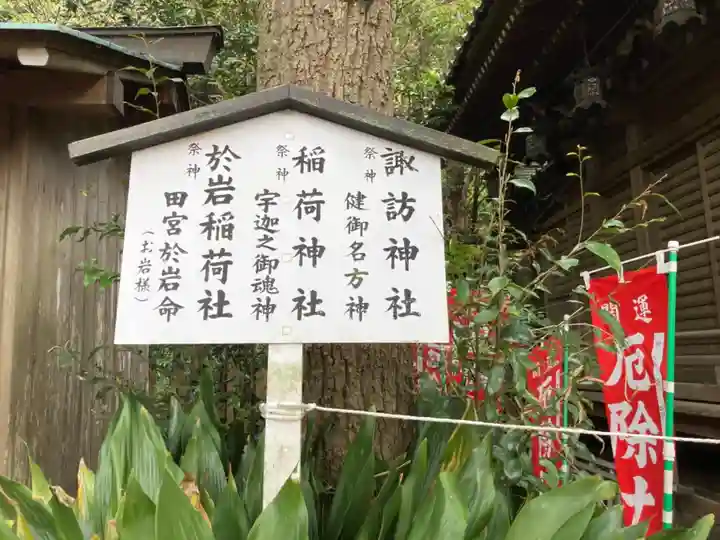 諏訪神社
祭神
健御名方神
稲荷神社
祭神
宇迦之御魂神
於岩稲荷社
祭神
田宮於岩命
(お岩様)
開運
厄除